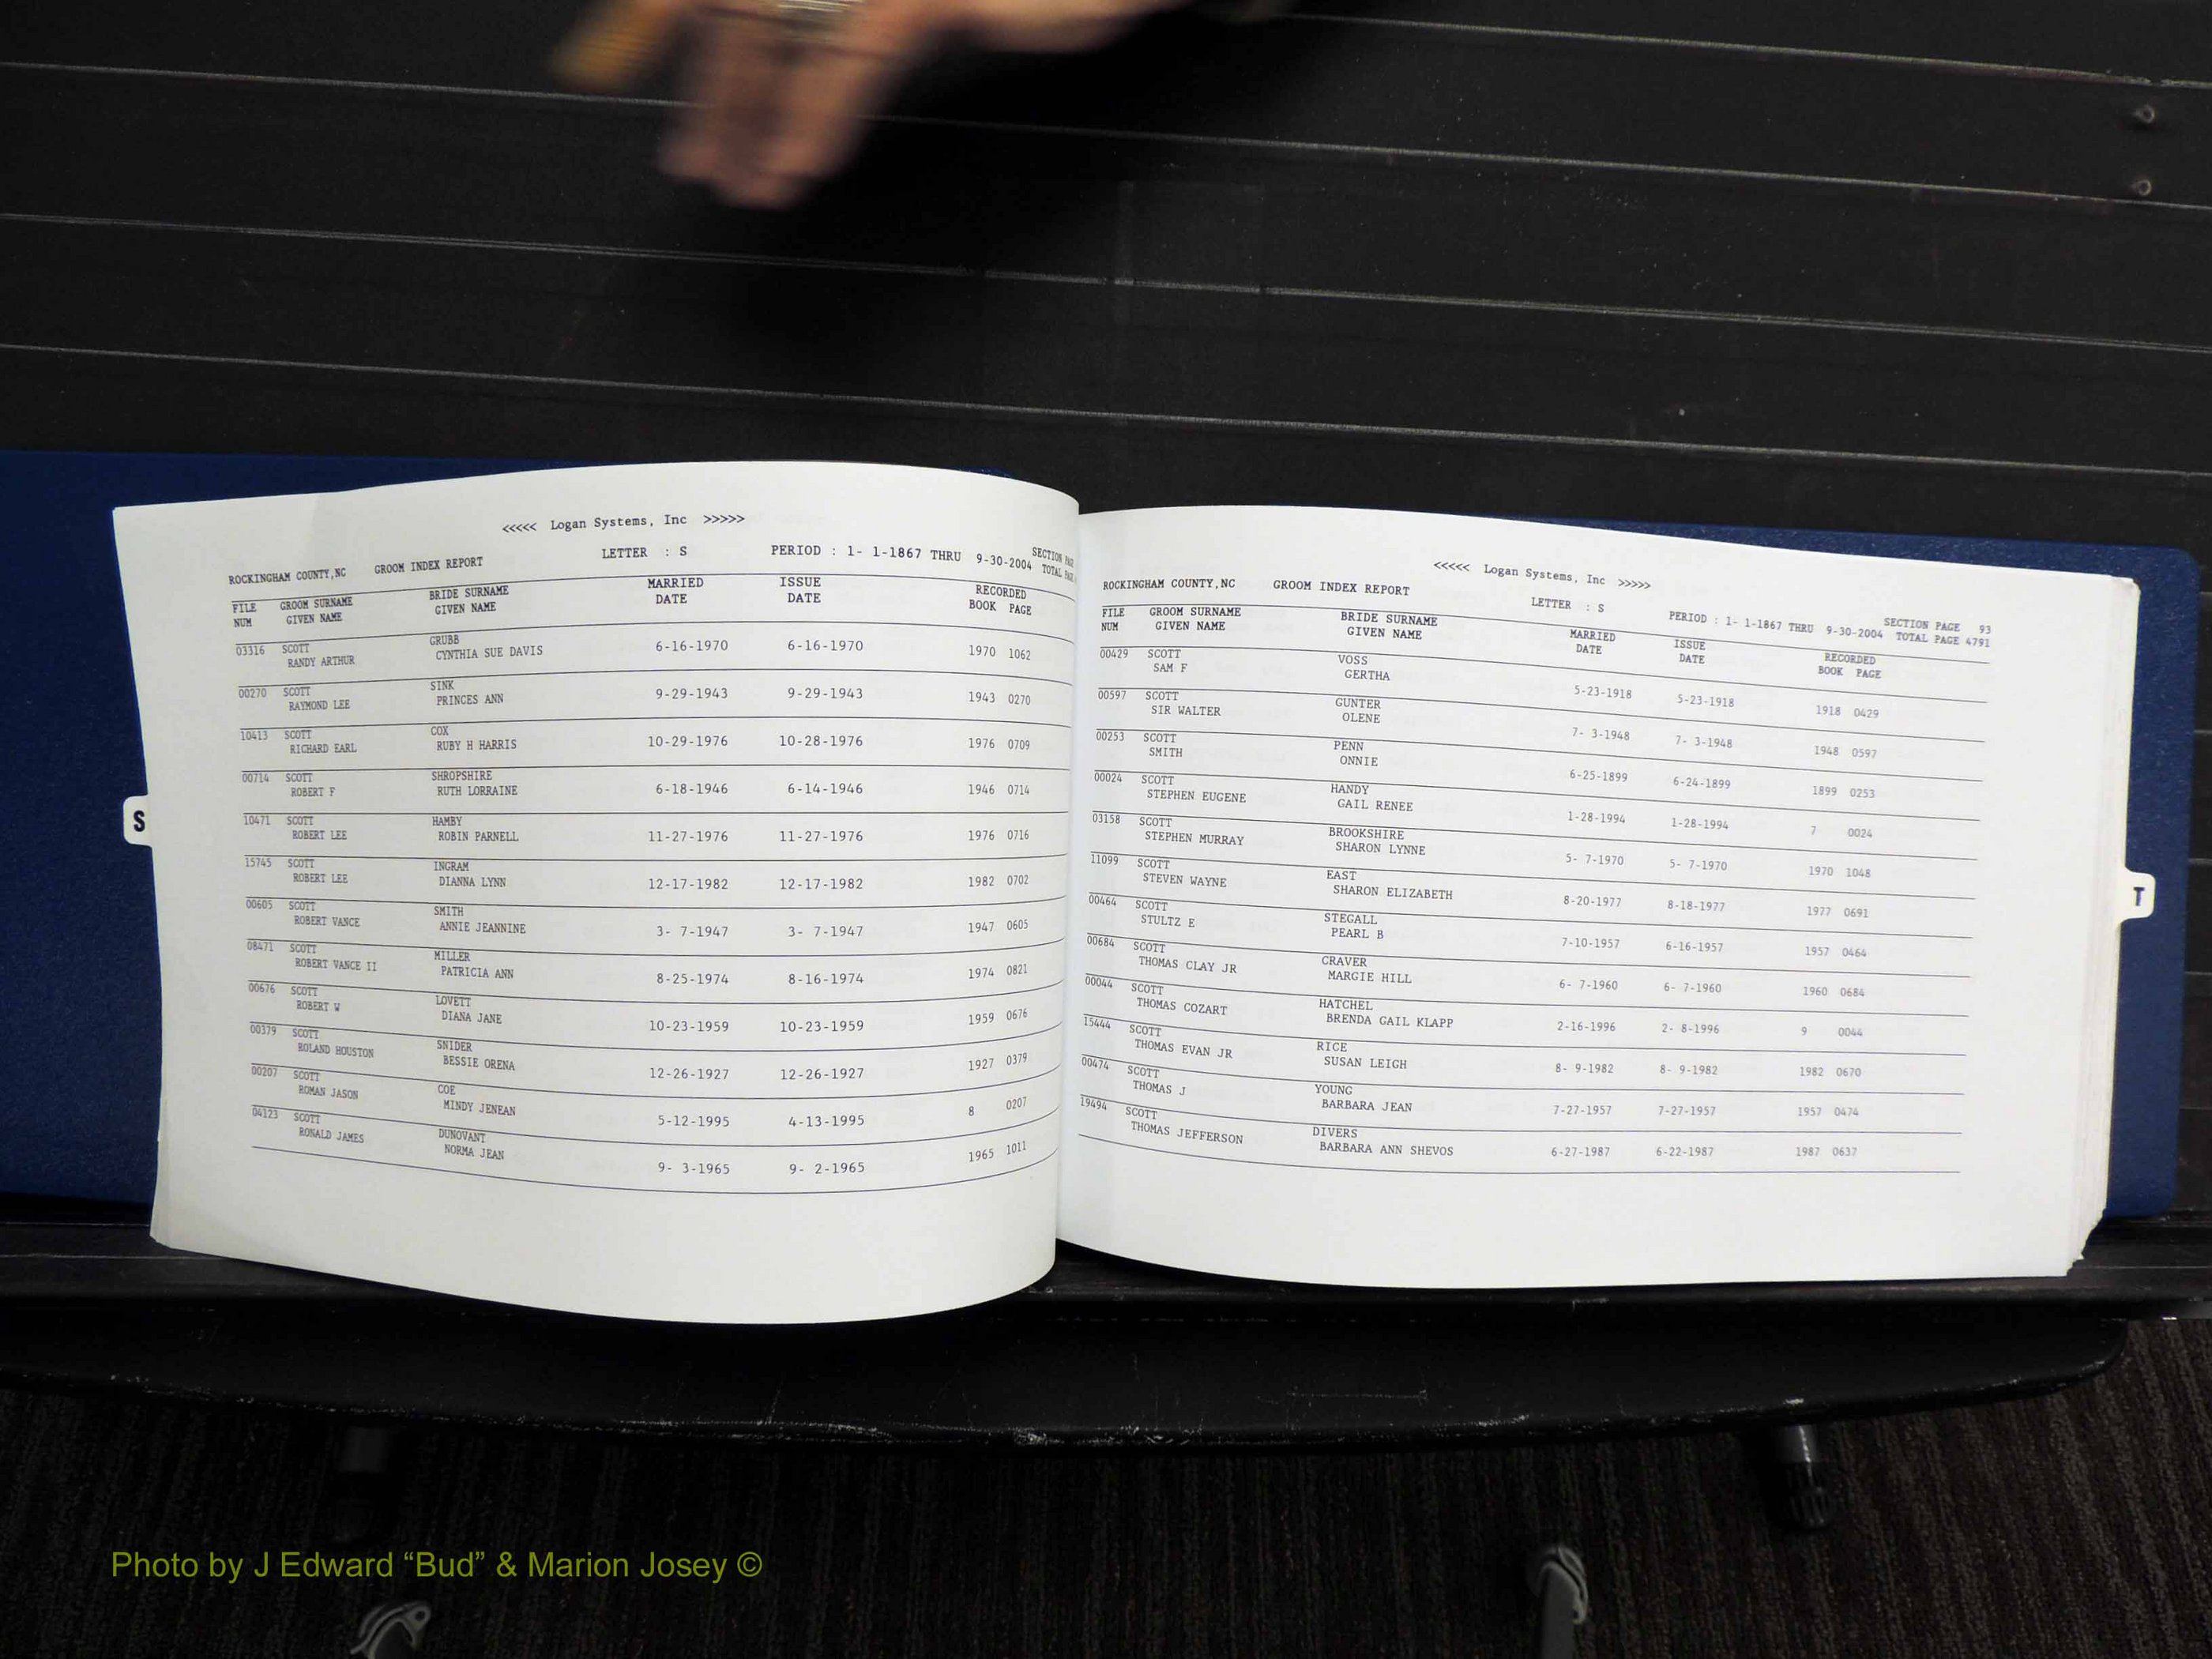 <<<<< Logan Systems, Inc >>>>>
ROCKINGHAM COUNTY,NC GROOM INDEX REPORT LETTER : S PERIOD : 1- 1-1867 THRU 9-30-2004 SECTION
TOTAL
FILE GROOM SURNAME BRIDE SURNAME MARRIED ISSUE RECORDED
NUM GIVEN NAME GIVEN NAME DATE DATE BOOK PAGE
03316 SCOTT GRUBB
RANDY ARTHUR CYNTHIA SUE DAVIS 6-16-1970 6-16-1970 1970 1062
00270 SCOTT SINK
RAYMOND LEE PRINCES ANN 9-29-1943 9-29-1943 1943 0270
10413 SCOTT COX
RICHARD EARL RUBY H HARRIS 10-29-1976 10-28-1976 1976 0709
00714 SCOTT SHROPSHIRE
ROBERT F RUTH LORRAINE 6-18-1946 6-14-1946 1946 0714
10471 SCOTT HAMBY
ROBERT LEE ROBIN PARNELL 11-27-1976 11-27-1976 1976 0716
15745 SCOTT INGRAM
ROBERT LEE DIANNA LYNN 12-17-1982 12-17-1982 1982 0702
00605 SCOTT SMITH
ROBERT VANCE ANNIE JEANNINE 3- 7-1947 3- 7-1947 1947 0605
08471 SCOTT MILLER
ROBERT VANCE II PATRICIA ANN 8-25-1974 8-16-1974 1974 0821
00676 SCOTT LOVETT
ROBERT W DIANA JANE 10-23-1959 10-23-1959 1959 0676
00379 SCOTT SNIDER
ROLAND HOUSTON BESSIE ORENA 12-26-1927 12-26-1927 1927 0379
00207 SCOTT COE
ROMAN JASON MINDY JENEAN 5-12-1995 4-13-1995 8 0207
04123 SCOTT DUNOVANT
RONALD JAMES NORMA JEAN 9- 3-1965 9- 2-1965 1965 1011
S
<<<<< Logan Systems, Inc >>>>>
ROCKINGHAM COUNTY,NC GROOM INDEX REPORT LETTER : S PERIOD : 1- 1-1867 THRU 9-30-2004 SECTION PAGE 93
TOTAL PAGE 4791
FILE GROOM SURNAME BRIDE SURNAME MARRIED ISSUE RECORDED
NUM GIVEN NAME GIVEN NAME DATE DATE BOOK PAGE
00429 SCOTT VOSS
SAM F GERTHA 5-23-1918 5-23-1918 1918 0429
00597 SCOTT GUNTER
SIR WALTER OLENE 7- 3-1948 7- 3-1948 1948 0597
00253 SCOTT PENN
SMITH ONNIE 6-25-1899 6-24-1899 1899 0253
00024 SCOTT HANDY
STEPHEN EUGENE GAIL RENEE 1-28-1994 1-28-1994 7 0024
03158 SCOTT BROOKSHIRE
STEPHEN MURRAY SHARON LYNNE 5- 7-1970 5- 7-1970 1970 1048
11099 SCOTT EAST
STEVEN WAYNE SHARON ELIZABETH 8-20-1977 8-18-1977 1977 0691
00464 SCOTT STEGALL
STULTZ E PEARL B 7-10-1957 6-16-1957 1957 0464
00684 SCOTT CRAVER
THOMAS CLAY JR MARGIE HILL 6- 7-1960 6- 7-1960 1960 0684
00044 SCOTT HATCHEL
THOMAS COZART BRENDA GAIL KLAPP 2-16-1996 2- 8-1996 9 0044
15444 SCOTT RICE
THOMAS EVAN JR SUSAN LEIGH 8- 9-1982 8- 9-1982 1982 0670
00474 SCOTT YOUNG
THOMAS J BARBARA JEAN 7-27-1957 7-27-1957 1957 0474
19494 SCOTT DIVERS
THOMAS JEFFERSON BARBARA ANN SHEVOS 6-27-1987 6-22-1987 1987 0637
T
Photo by J Edward “Bud” & Marion Josey ©